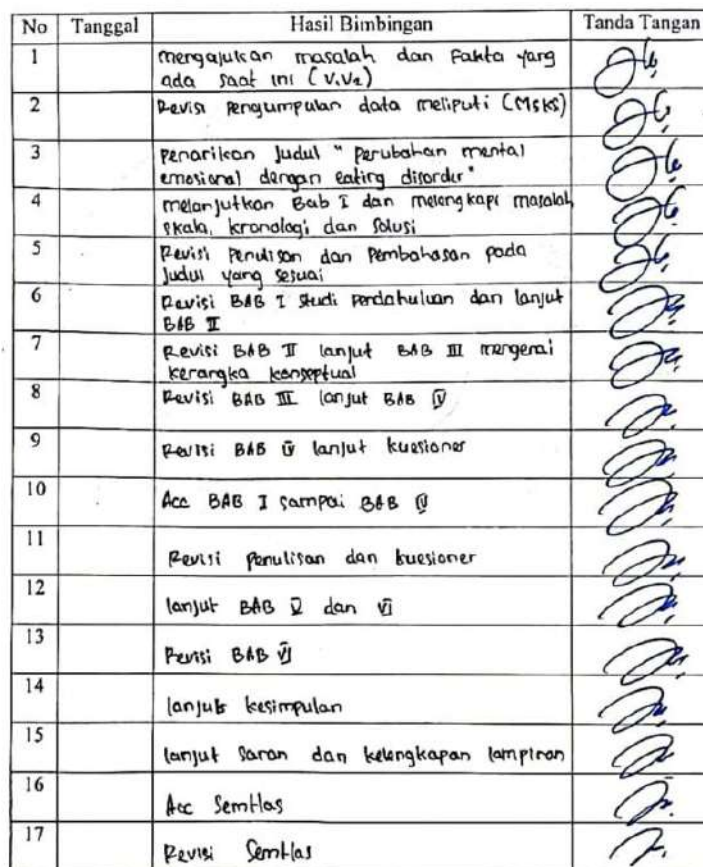 No Tanggal Hasil Bimbingan Tanda Tangan
1 mengajukan masalah dan Fakta yang
ada saat ini (V1V2)
2 Revisi pengumpulan data meliputi (MSKS)
3 penarikan Judul " perubahan mental
emosional dengan eating disorder"
4 melanjutkan Bab I dan melengkapi masalah,
skala, kronologi dan Solusi
5 Revisi Penulisan dan Pembahasan pada
Judul yang sesuai
6 Revisi BAB I studi Pendahuluan dan lanjut
BAB II
7 Revisi BAB II lanjut BAB III mengenai
kerangka konseptual
8 Revisi BAB III lanjut BAB IV
9 Revisi BAB IV lanjut kuesioner
10 Acc BAB I sampai BAB IV
11 Revisi penulisan dan kuesioner
12 lanjut BAB V dan VI
13 Revisi BAB VI
14 lanjut kesimpulan
15 lanjut saran dan kelengkapan lampiran
16 Acc Semhas
17 Revisi Semhas